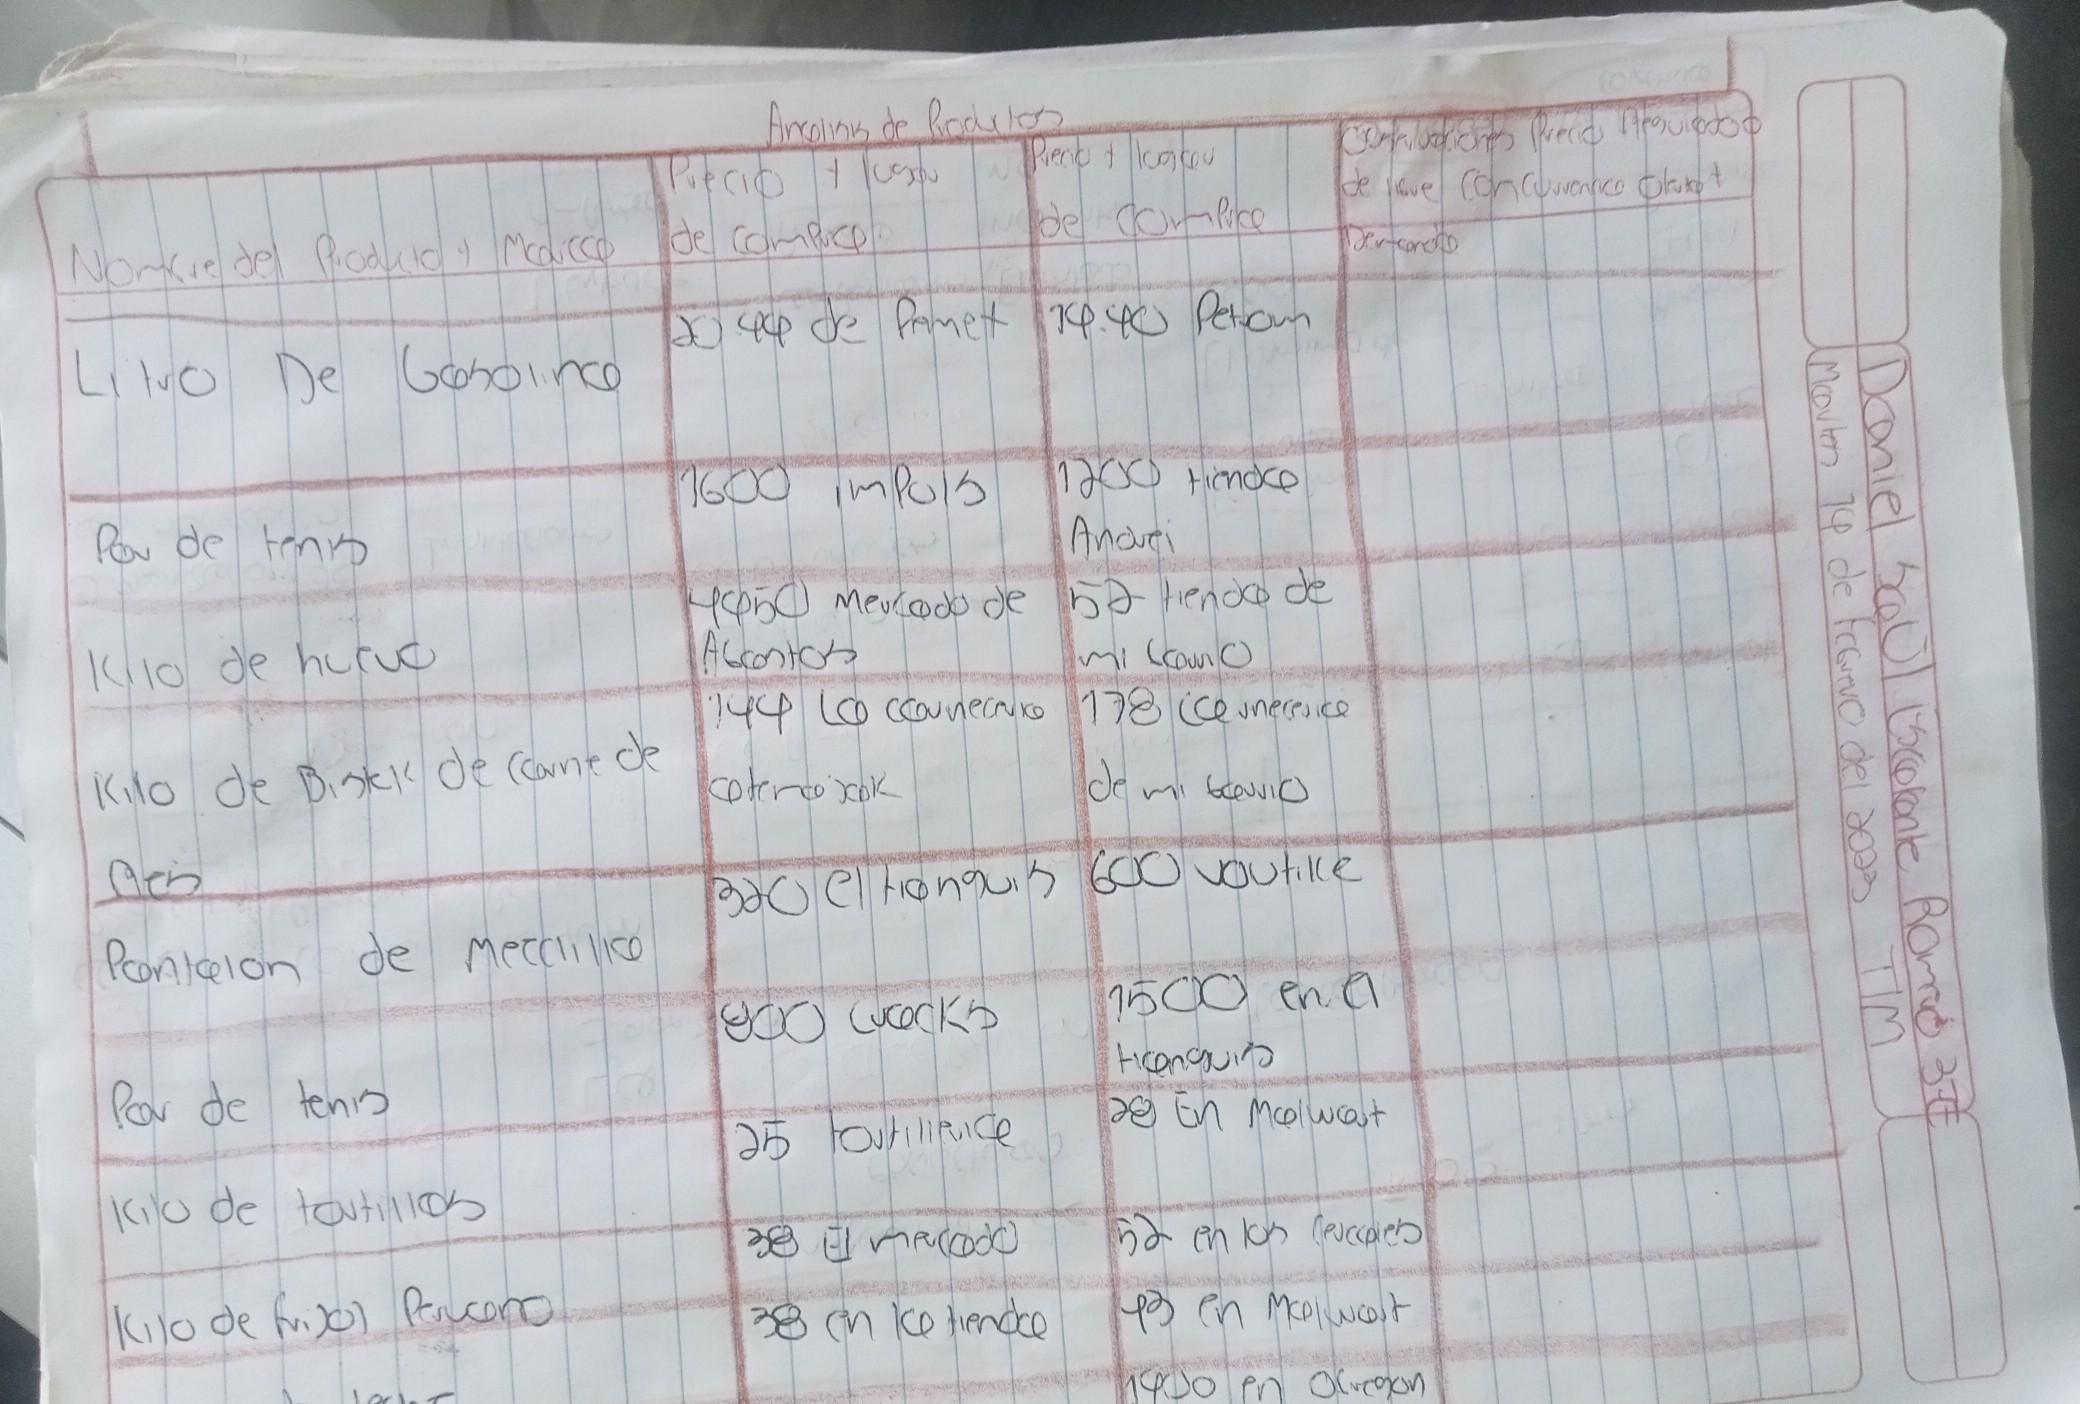 Analisis de Productos
Nombre del Producto y Marca
Precio + lugar
de compra
Precio + lugar
de compra
Conclusiones Precio Regulado o
de libre Concurrencia Oferta +
Demanda
Litro De Gasolina
20.44 de Pemex
14.40
Par de tenis
1600 impuls
1200 tienda
Andrei
Kilo de huevo
4450 mercado de
Abastos
52 tienda de
mi barrio
Kilo de Bistek de carne de
Res
144 La carneceria
178 carneceria
de mi barrio
Pantalon de Mezclilla
320 El tianguis
600
Par de tenis
800
1500 en el
tianguis
Kilo de tortillas
25 tortilleria
28 En Walmart
Kilo de frijol Peruano
38 El mercado
52 en los
38 en la tienda
43 en Walmart
1400 en Obregon
Daniel Saúl Escalante Romo 3-E
Martes 14 de febrero del 2023 T/M